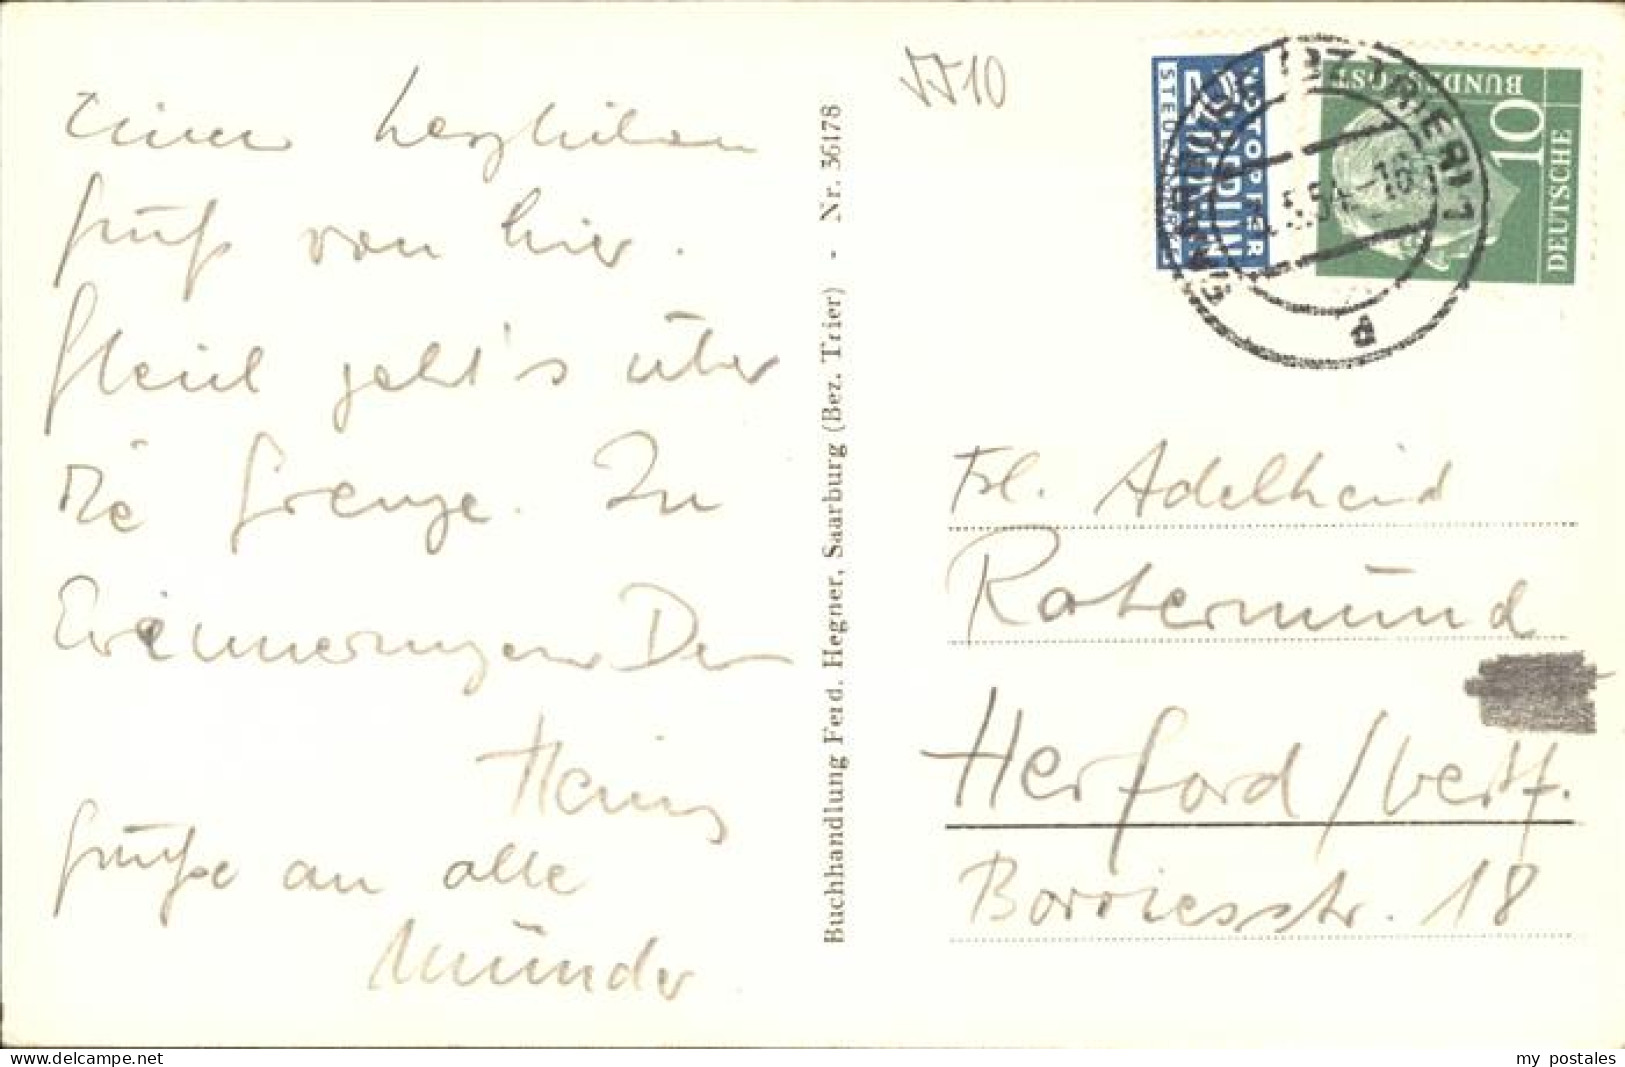 Einen herzlichen
Gruß von hier.
Gleich geht's über
die Grenze. Zu
Erinnerungen Dein
Heinz
Grüße an alle
Münder
Buchhandlung Ferd. Hegner, Saarburg (Bez. Trier) - Nr. 36178
10
NOTOPFER
2 BERLIN
STEUERMARKE
DEUTSCHE
BUNDESPOST
10
(BZ TRIER) 1
5.54-16
a
Frl. Adelheid
Rotermund
Herford/Westf.
Borriesstr. 18
delcampe.net
my postales